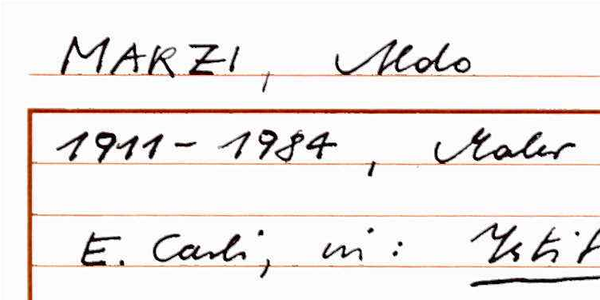 MARZI, Aldo
1911-1984, Maler
E. Carli, in: